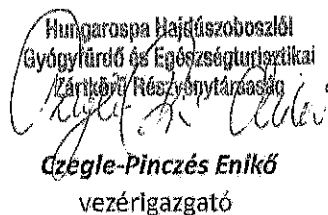 Hungarospa Hajdúszoboszlói
Gyógyfürdő és Egészségturisztikai
Zártkörű Részvénytársaság
Czegle-Pinczés Enikő
vezérigazgató